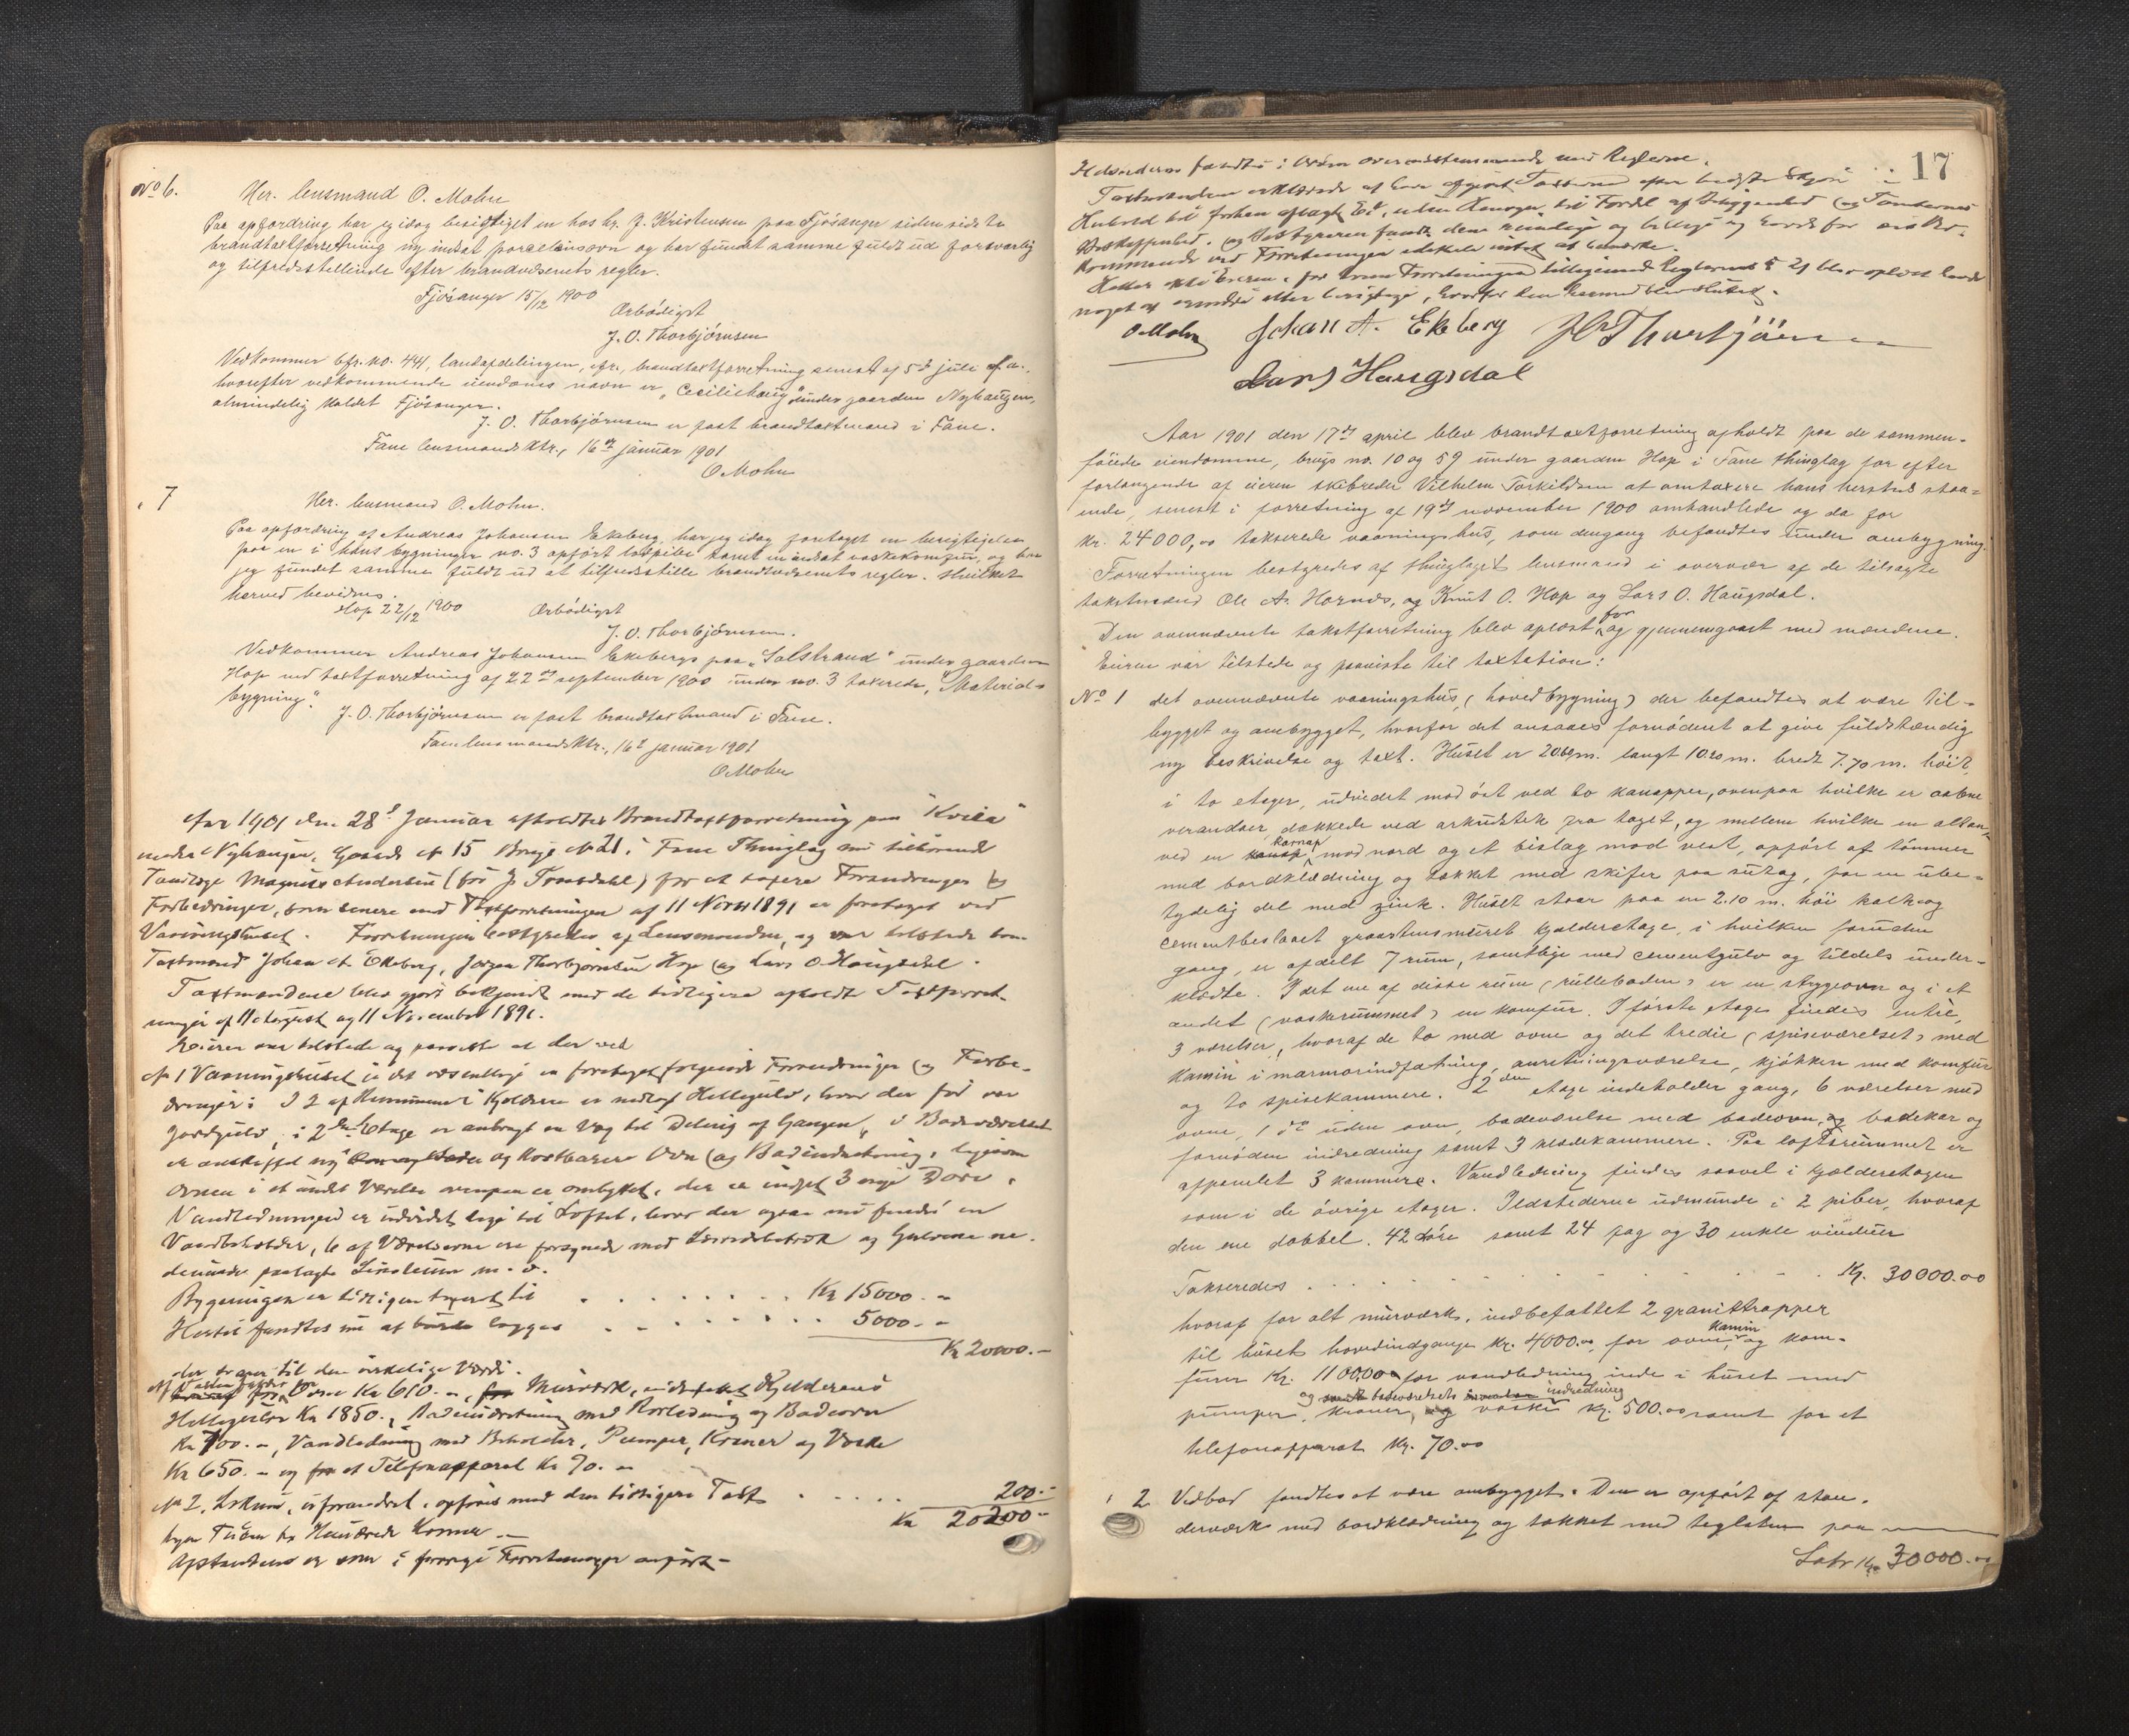 No 6.
Hr. lensmand O. Mohn
Paa opfordring har jeg idag besigtiget en hos hr. J. Kristensen paa Fjøsanger siden sidste
brandtaxtforretning ny indsat porcelænsovn og har fundet samme fuldt ud forsvarlig
og tilfredsstillende efter brandvæsenets regler.
Fjøsanger 15/12 1900
Ærbødigst
J. O. Thorbjørnsen
Vedkommer bfr. no. 441, landafdelingen, cfr. brandtaxtforretning senest af 5te juli f. a.,
hvorefter vedkommende eiendoms navn er "Ceciliehaug" under gaarden Nyhaugen,
almindelig kaldet Fjøsanger.
J. O. Thorbjørnsen er fast brandtaxtmand i Fane.
Fane lensmandsktr., 16de januar 1901
O Mohn
" 7
Hr. lensmand O. Mohn.
Paa opfordring af Andreas Johansen Ekeberg har jeg idag foretaget en besigtigelse
paa en i hans bygninger no. 3 opført løspibe samt indsat vaskekomfur, og har
jeg fundet samme fuldt ud at tilfredsstille brandvæsenets regler. Hvilket
herved bevidnes.
Hop 22/12 1900
Ærbødigst
J. O. Thorbjørnsen.
Vedkommer Andreas Johansen Ekebergs paa "Solstrand" under gaarden
Hop ved taxtforretning af 22de september 1900 under no. 3 taxerede, "Material-
bygning".
J. O. Thorbjørnsen er fast brandtaxtmand i Fane.
Fane lensmandsktr., 16de januar 1901
O Mohn
Aar 1901 den 28de Januar afholdtes Brandtaxtforretning paa "Kvila"
under Nyhaugen, Gaards No 15 Brugs No 21 i Fane Thinglag nu tilhørende
Tandlæge Magnus Andersen (før J. Tronsdahl) for at taxere Forandringer og
Forbedringer, som senere end Taxtforretningen af 11 Novbr 1891 er foretaget ved
Vaaningshuset. Forretningen bestyredes af Lensmanden, og var tilstede som
Taxtmænd Johan A. Ekeberg, Jørgen Thorbjørnsen Hop og Lars O Haugsdal.
Taxtmændene blev gjort bekjendt med de tidligere afholdte Taxtforret-
ninger af 11 August og 11 November 1891.
Eieren var tilstede og paaviste at der ved
No 1 Vaaningshuset i det væsentlige er foretaget følgende Forandringer og Forbe-
dringer: I 2 af Rummene i Kjælderen er nedlagt Hellegulv, hvor der før var
Jordgulv, i 2den Etage er anbragt en Væg til Deling af Gangen, i Badeværelset
er anskaffet ny og kostbarere Ovn og Badindretning, ligesom
Ovnen i et andet Værelse ovenpaa er ombyttet, der er indsat 3 nye Døre,
Vandledningen er udvidet lige til Loftet, hvor der ogsaa nu findes en
Vandbeholder, 6 af Værelserne ere forsynede med Lærredsbetræk og Gulvene ne-
denunder paalagte Linoleum m. v.
Bygningen er tidligere taxeret til . . . . . . . . Kr 15000. -
Hertil fandtes nu at burde lægges . . . . . . . . 5000. -
Kr 20000. -
der svarer til den virkelige Værdi.
Ovne Kr 610. -, Murværk, Kjælderens
Hellegulv Kr 1850. -, Badeindretning med Rørledning og Badeovn
Kr 700. -, Vandledning med Beholder, Pumper, Kraner og Vaske
Kr 650. - og et Telefonapparat Kr 70. -
No 2. uforandret, opføres med den tidligere Taxt . . . . . 200. -
Kr 20200 -
tyve Tusen to Hundrede Kroner. -
Afstandene er som i forrige Forretninger anført -
17
Ildstederne fandtes i Orden overensstemmende med Reglerne.
Taxtmændene erklærede at have afgivet Taxterne efter bedste Skjøn i
Henhold til forhen aflagt Ed, uden Hensyn til Fordel af Beliggenhed og Tomternes
Beskaffenhed, og Bestyreren fandt dem rimelige og billige og havde for sit Ved-
kommende ved Forretningen intet at bemærke.
Heller ikke Eieren, for hvem Forretningen tilligemed Reglernes § 21 blev oplæst havde
noget at erindre eller berigtige, hvorfor den hermed blev sluttet.
O Mohn Johan A. Ekeberg J O Thorbjörnsen
Lars Haugsdal
Aar 1901 den 17de april blev brandtaxtforretning afholdt paa de sammen-
føiede eiendomme, brugs no. 10 og 59 under gaarden Hop i Fane thinglag for efter
forlangende af eieren skibsreder Vilhelm Torkildsen at omtaxere hans hersteds staa-
ende, senest i forretning af 19de november 1900 omhandlede og da for
kr. 24000,00 takserede vaaningshus, som dengang befandtes under ombygning.
Forretningen bestyredes af thinglagets lensmand i overvær af de tilsagte
takstmænd Ole A. Hornæs, og Knut O. Hop og Lars O. Haugsdal.
Den ovennævnte takstforretning blev oplæst for og gjennemgaaet med mændene.
Eieren var tilstede og paaviste til taxtation:
No 1 det ovennævnte vaaningshus, (hovedbygning) der befandtes at være til-
bygget og ombygget, hvorfor det ansaaes fornødent at give fuldstændig
ny beskrivelse og taxt. Huset er 20.60 m. langt 10.20 m. bredt 7.70 m. høit,
i to etager, udvidet mod øst ved to karnapper, ovenpaa hvilke er aabne
verandaer dækkede ved arkudstik fra taget, og mellem hvilke en altan,
ved en karnap mod nord og et bislag mod vest, opført af tømmer
med bordklædning og tækket med skifer paa sutag, for en ube-
tydelig del med zink. Huset staar paa en 2.10 m. høi kalk og
cementbeslaaet graastensmuret kjælderetage, i hvilken foruden
gang, er afdelt 7 rum, samtlige med cementgulv og tildels under-
klædte. I det ene af disse rum (rulleboden) er en strygeovn og i et
andet (vaskerummet) en komfur. I første etage findes entré,
3 værelser, hvoraf de to med ovne og det tredie (spiseværelset) med
kamin i marmorindfatning, anretningsværelse, kjøkken med komfur
og to spisekammere. 2den etage indeholder gang, 6 værelser med
ovne, 1 do uden ovn, badeværelse med badeovn, og badekar og
fornøden indredning samt 3 klædekammere. Paa loftsrummet er
afpanelet 3 kammere. Vandledning findes saavel i kjælderetagen
som i de øvrige etager. Ildstederne udmunde i 2 piber, hvoraf
den ene dobbel. 42 døre samt 24 fag og 30 enkle vinduer
Takseredes . . . . . . . . . . Kr. 30000.00
hvoraf for alt murværk, indbefattet 2 granittrapper
til husets hovedindgange kr. 4000.00, for ovne, kamin og kom-
furer kr. 1100,00 for vandledning inde i huset med
pumper, kraner, vaske og badeværelsets indredning kr. 500.00 samt for et
telefonapparat kr. 70.00
" 2 Vedbod fandtes at være ombygget. Den er opført af sten-
derværk med bordklædning og tækket med teglsten paa
Latr kr. 30000.00